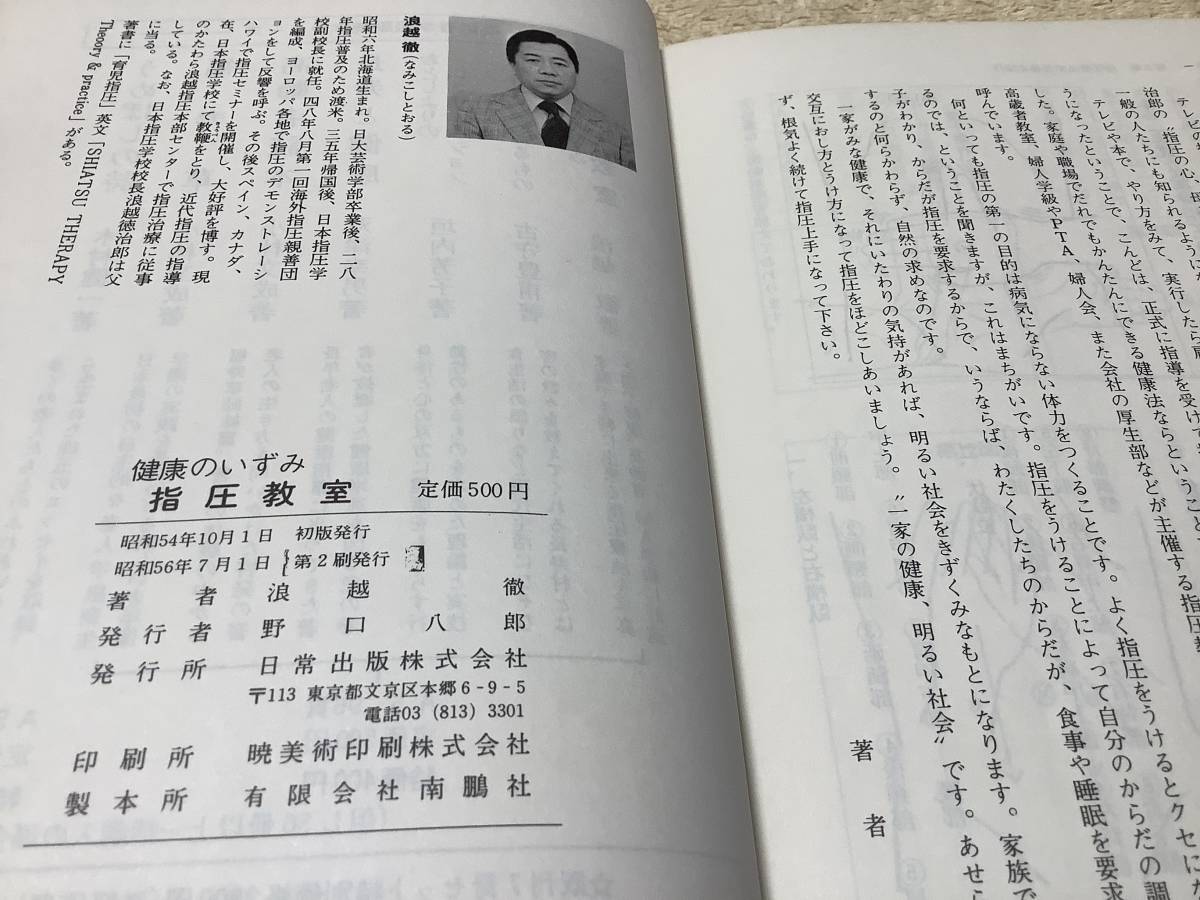 テレビのお
治郎の〝指圧の心、母
一般の人たちにも知られるように
テレビや本で、やり方をみて、実行したら肩
うになったということで、こんどは、正式に指導を受けて
した。家庭や職場でだれでもかんたんにできる健康法ならということ
高歳者教室、婦人学級やPTA、婦人会、また会社の厚生部などが主催する指圧教
呼んでいます。
何といっても指圧の第一の目的は病気にならない体力をつくることです。よく指圧をうけるとクセにな
るのでは、ということを聞きますが、これはまちがいです。指圧をうけることによって自分のからだの調
子がわかり、からだが指圧を要求するからで、いうならば、わたくしたちのからだが、食事や睡眠を要求
するのと何らかわらず、自然の求めなのです。
一家がみな健康で、それにいたわりの気持があれば、明るい社会をきずくみなもとになります。家族で
交互におし方とうけ方になって指圧をほどこしあいましょう。〝一家の健康、明るい社会〟です。あせら
ず、根気よく続けて指圧上手になって下さい。
著者
浪越 徹(なみこしとおる)
昭和六年北海道生まれ。日大芸術学部卒業後、二八
年指圧普及のため渡米。三五年帰国後、日本指圧学
校副校長に就任。四八年八月第一回海外指圧親善団
を編成、ヨーロッパ各地で指圧のデモンストレーシ
ョンをして反響を呼ぶ。その後スペイン、カナダ、
ハワイで指圧セミナーを開催し、大好評を博す。現
在、日本指圧学校にて教鞭をとり、近代指圧の指導
のかたわら浪越指圧本部センターで指圧治療に従事
している。なお、日本指圧学校校長浪越徳治郎は父
に当る。
著書に「育児指圧」英文「SHIATSU THERAPY
Theory & practice」がある。
健康のいずみ
指圧教室 定価500円
昭和54年10月1日 初版発行
昭和56年7月1日 第2刷発行
著者 浪越徹
発行者 野口八郎
発行所 日常出版株式会社
〒113 東京都文京区本郷6-9-5
電話03 (813) 3301
印刷所 暁美術印刷株式会社
製本所 有限会社南鵬社